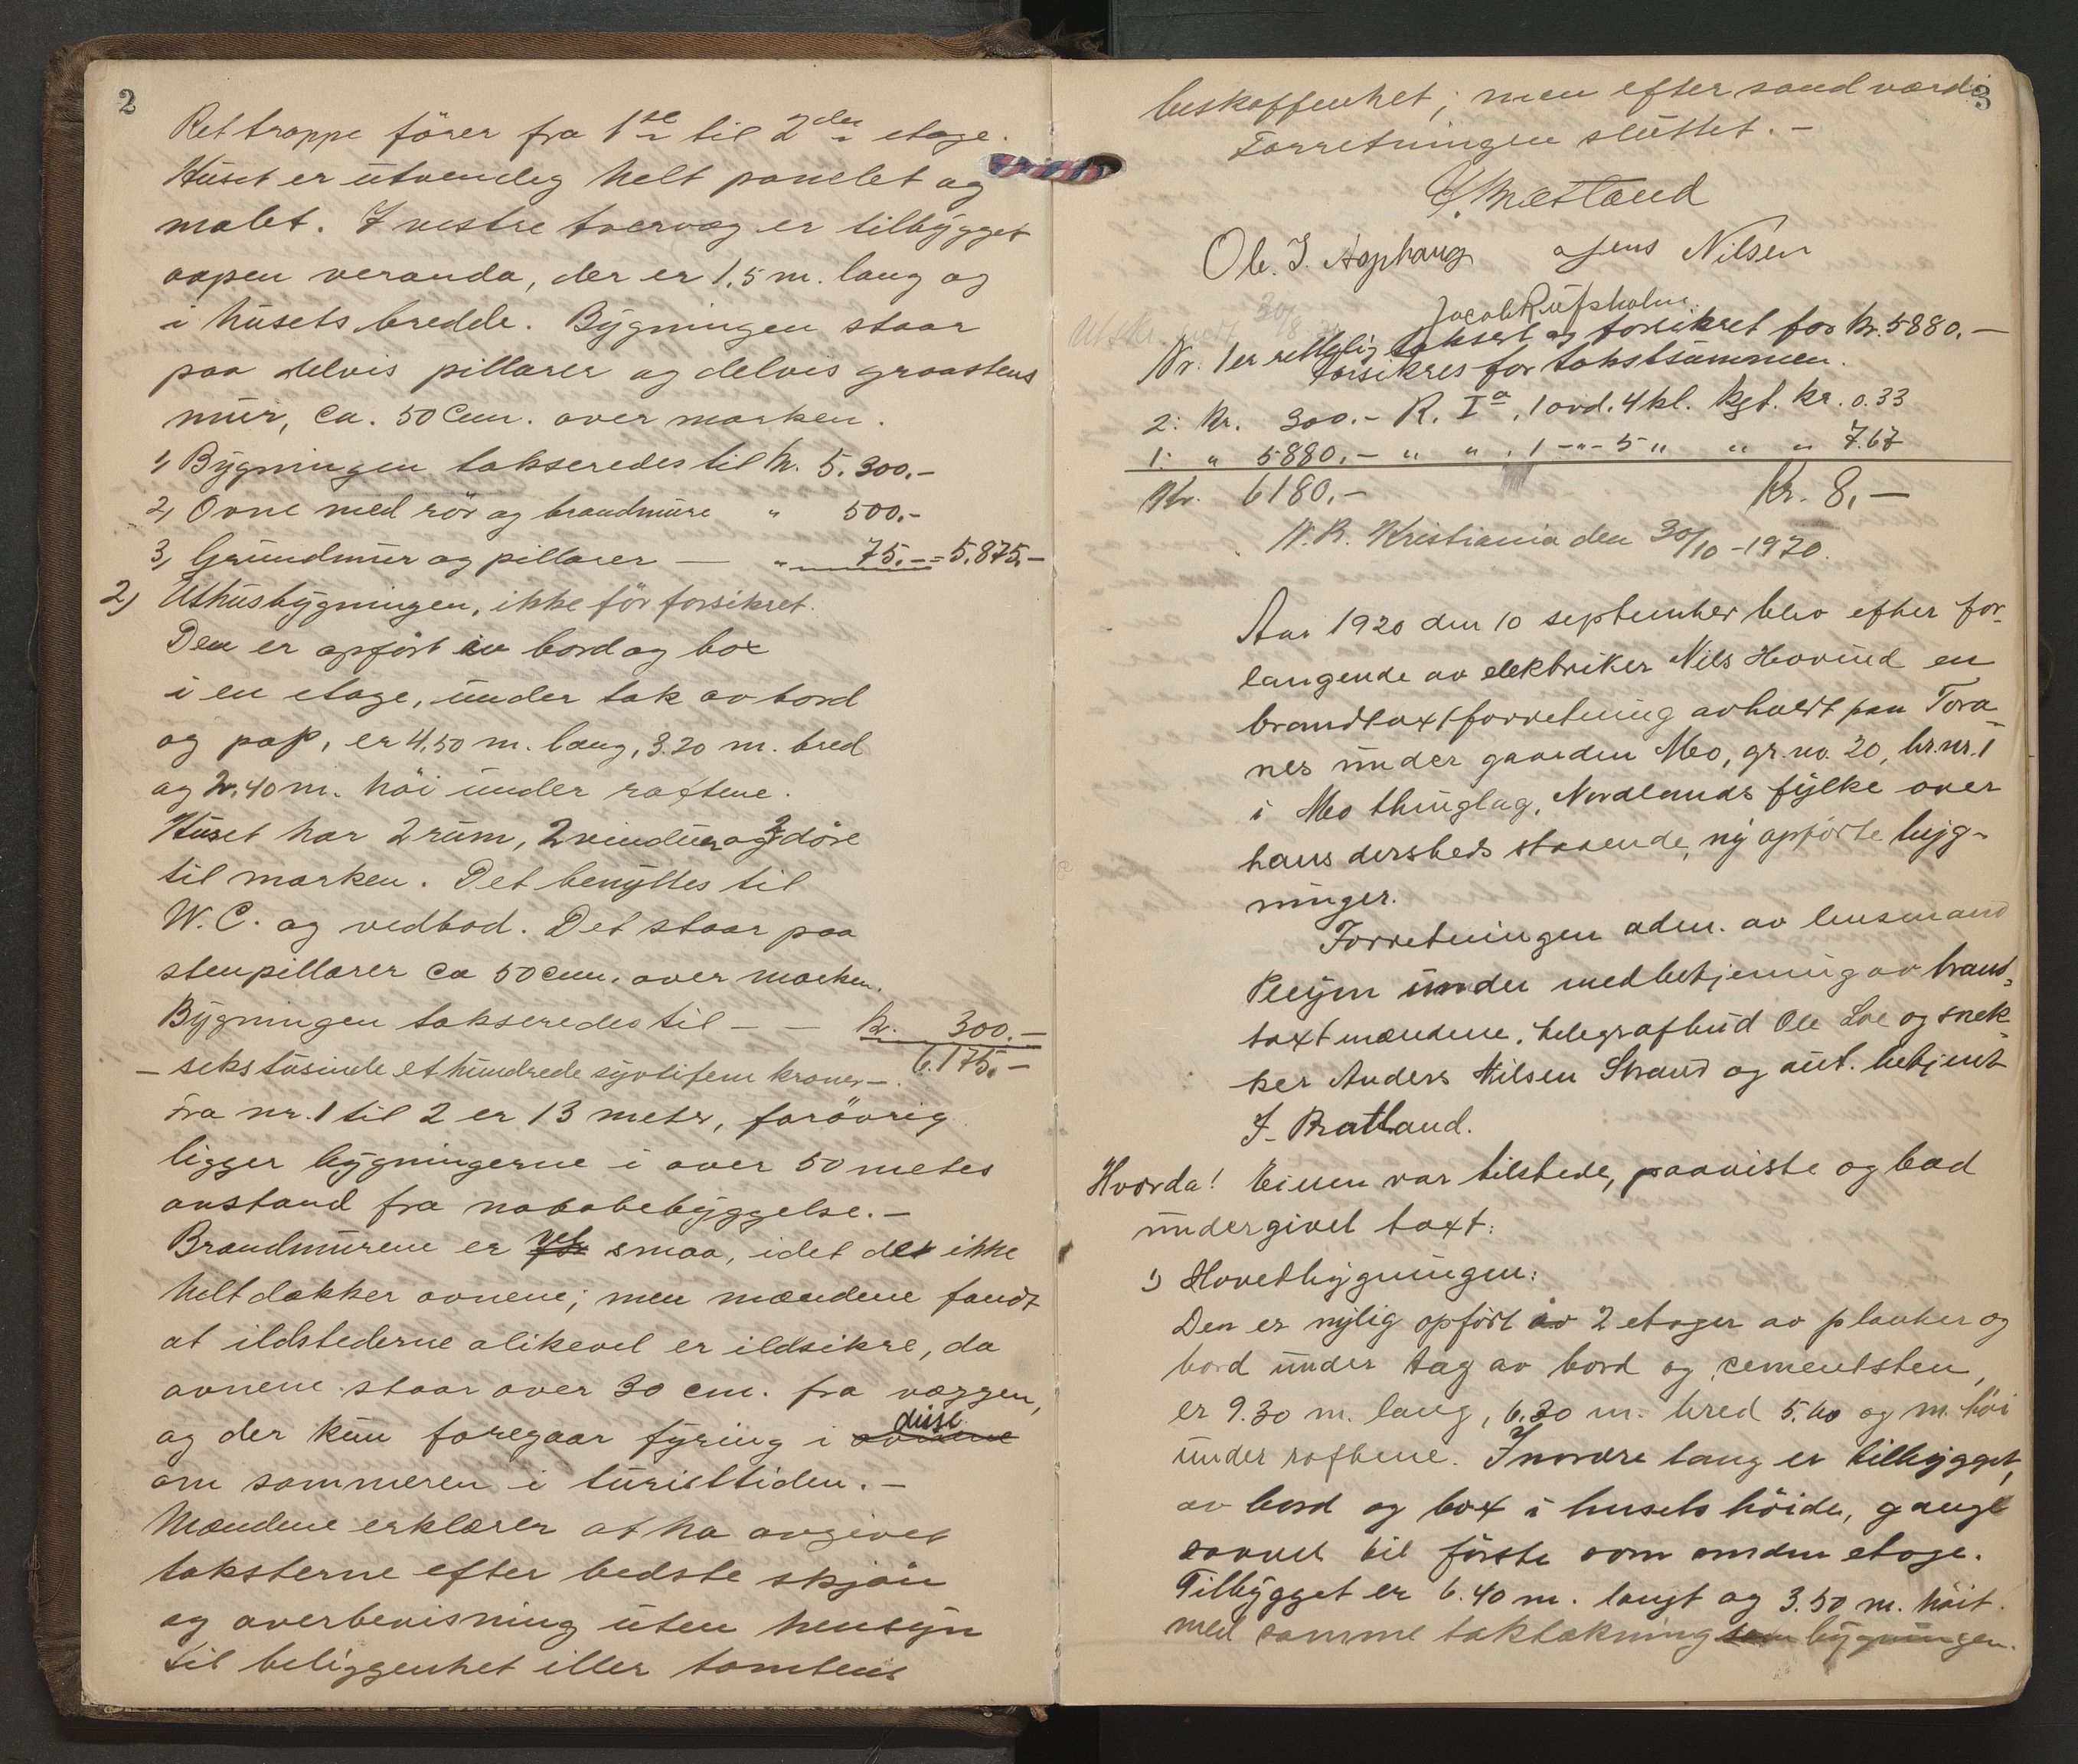 2
Ret trappe förer fra 1ste til 2den etage.
Huset er utvendig helt panelet og
malet. I vestre tvervæg er tilbygget
aapen veranda, der er 1,5 m. lang og
i husets bredde. Bygningen staar
paa delvis pillarer og delvis graastens
mur, ca. 50 Cm. over marken.
1) Bygningen takseredes til kr. 5.300.-
2) Ovne med rör og brandmure " 500.-
3) Grundmur og pillarer — " 75.- = 5.875.-
2) Uthusbygningen, ikke för forsikret.
Den er opfört av bord og box
i en etage, under tak av bord
og pap, er 4,50 m. lang, 3.20 m. bred
og 2.40 m. höi under raftene.
Huset har 2 rum, 2 vinduer og 2 döre
til marken. Det benyttes til
W.C. og vedbod. Det staar paa
stenpillarer ca 50 cm. over marken.
Bygningen takseredes til - - kr. 300.-
6.175.-
- seks tusinde et hundrede syvtifem kroner -.
Fra nr. 1 til 2 er 13 meter, forövrig
ligger bygningerne i over 50 meters
avstand fra nabobebyggelse.-
Brandmurene er vel smaa, idet det ikke
helt dækker ovnene; men mændene fandt
at ildstederne alikevel er ildsikre, da
ovnene staar over 30 cm. fra væggen,
og der kun foregaar fyring i ovnene disse
om sommeren i turisttiden.-
Mændene erklærer at ha avgivet
taksterne efter bedste skjön
og overbevisning uten hensyn
til beliggenhet eller tomtens
3
beskaffenhet; men efter sand værdi
Forretningen sluttet.-
Ole. J. Asphaug Jens Nilsen
Nr. 1 er rettelig taksert og forsikret for kr. 5880.-
forsikres for takstsummen.
2: Kr. 300.- R. Ia, 1 avd. 4 kl. Kgt. kr. 0.33
1: " 5880.- " ", 1 -"- 5 " " " 7.67
Kr. 6180.- Kr. 8,-
N.B. Kristiania den 30/10 - 1920.
Aar 1920 den 10 september blev efter for-
langende av elektriker Nils Hovind en
brandtaxtforretning avholdt paa Tora-
nes under gaarden Mo, gr. no. 20, br. nr. 1
i Mo thinglag, Nordlands fylke over
hans dersteds staaende, ny opförte byg-
ninger.
Forretningen adm. av lensmand
under medbetjening av brand-
taxtmændene, telegrafbud Ole Loe og snek-
ker Anders Nilsen Strand og aut. betjent
J. Bratland.
Hvorda! Eieren var tilstede, paaviste og bad
undergivet taxt:
1) Hovetbygningen:
Den er nylig opfört av 2 etager av planker og
bord under tag av bord og cementsten,
er 9.30 m. lang, 6.30 m. bred 5.60 og m. höi
under raftene. I nordre lang er tilbygget,
av bord og box i husets höide, gange
saavel til förste som anden etage.
Tilbygget er 6.40 m. langt og 3.50 m. höit.
med samme taktækning som bygningen.